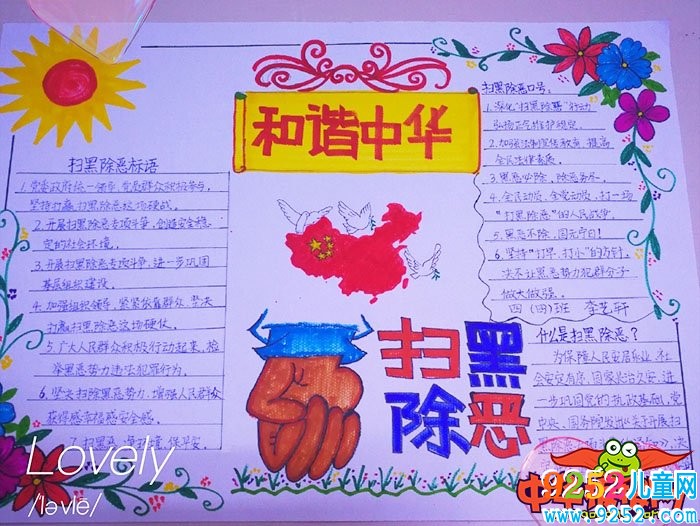 和谐中华
扫黑除恶标语
1.党委政府统一领导,党员群众积极参与,
坚持打赢扫黑除恶这场硬战。
2.开展扫黑除恶专项斗争,创造安全稳
定的社会环境。
3.开展扫黑除恶专项斗争,进一步巩固
基层组织建设。
4.加强组织领导,紧紧依靠群众,坚决
打赢扫黑除恶这场硬仗。
5.广大人民群众积极行动起来,检
举黑恶势力违法犯罪行为。
6.坚决扫除黑恶势力,增强人民群众
获得感幸福感安全感。
扫黑除恶口号:
1.深化"扫黑除恶"行动
弘扬正气维护稳定。
2.加强法制宣传教育,提高
全民法律素质。
3.黑恶必除,除恶务尽。
4.全民动员,全党动员,打一场
"打黑除恶"的人民战争。
5.黑恶不除,国无宁日!
6.坚持"打早、打小"的方针,
决不让黑恶势力犯罪分子
做大做强。
四(四)班
扫黑
除恶
什么是扫黑除恶?
为保障人民安居乐业,社
会安定有序,国家长治久安,进
一步巩固党的执政基础,党
中央、国务院发出《关于开展扫
Lovely
/ləvlē/
9252儿童网
www.9252.com